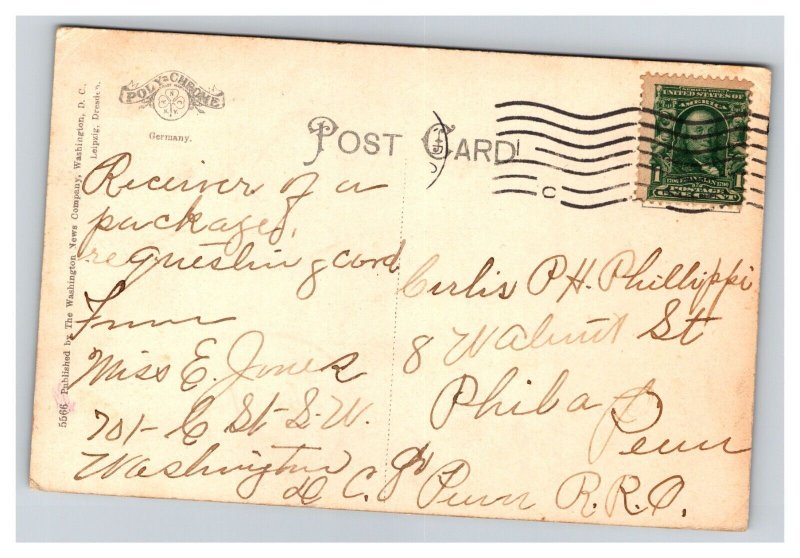 POLY-CHROME
Germany.
POST CARD
5566 Published by The Washington News Company, Washington, D. C., Leipzig, Dresden.
UNITED STATES OF
AMERICA
1 POSTAGE 1
ONE CENT
C
Receiver of a
package,
requesting card
From
Miss E. Jones
701- E St- S.W.
Washington
D C.
P. H. Phillippi
8 Walnut St
Phila
Penn
Penn R.R.O.